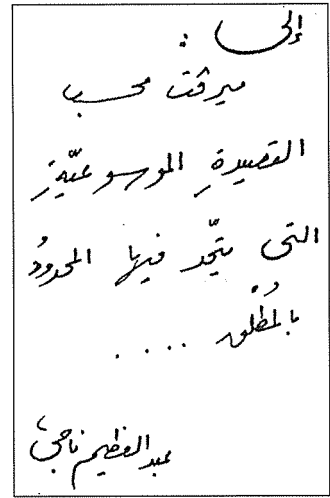 إلى :
ميرڤت محسب
القصيدةِ الموسوعيّةِ
التى يتّحد فيها المحدودُ
بالمُطْلَق ....
عبد العظيم ناجى